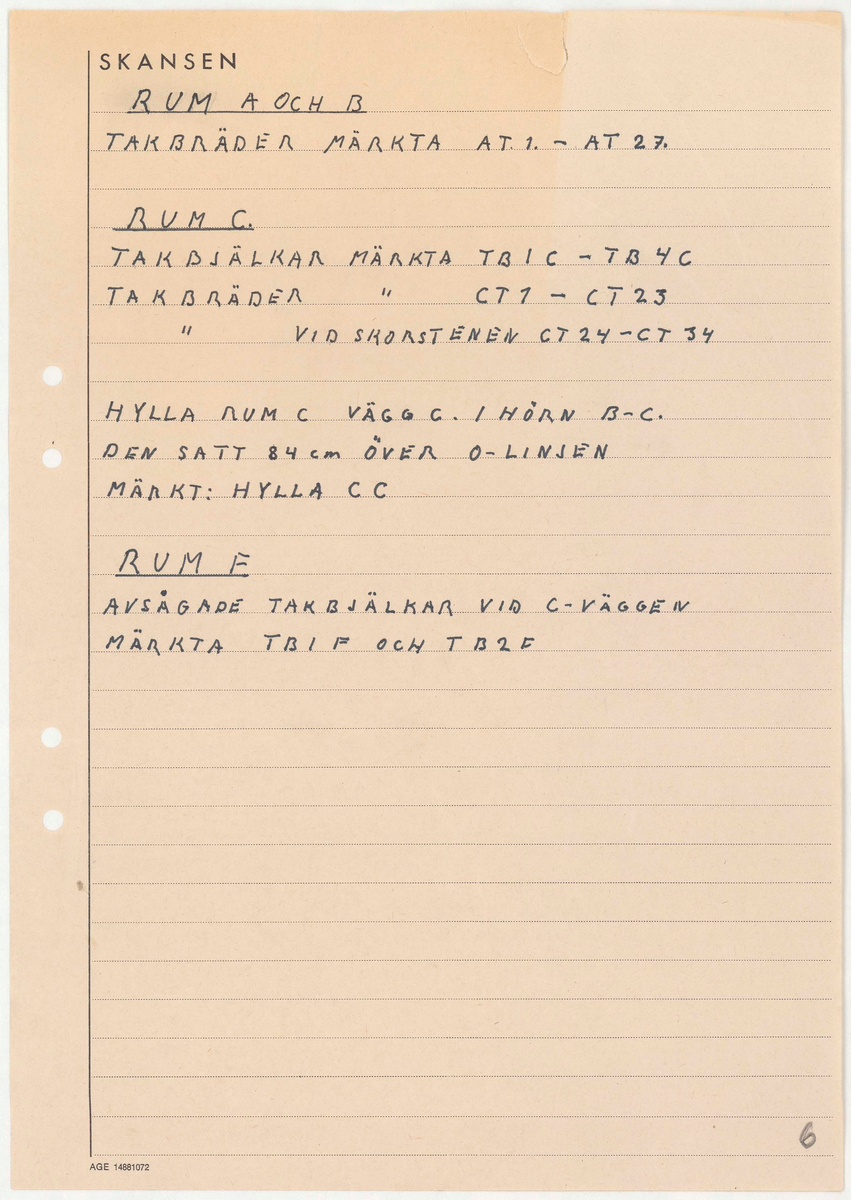 SKANSEN
RUM A OCH B
TAKBRÄDER MÄRKTA AT. 1. - AT 27.
RUM C.
TAKBJÄLKAR MÄRKTA TB1C - TB4C
TAKBRÄDER " CT1 - CT23
" VID SKORSTENEN CT24-CT34
HYLLA RUM C VÄGG C. I HÖRN B-C.
DEN SATT 84 cm ÖVER O-LINJEN
MÄRKT: HYLLA CC
RUM F
AVSÅGADE TAKBJÄLKAR VID C-VÄGGEN
MÄRKTA TB1F OCH TB2F
6
AGE 14881072